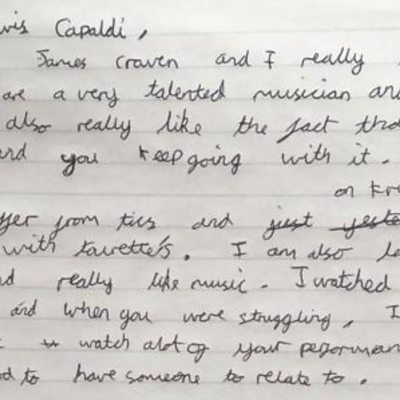 wis Capaldi,
James Craven and I really
are a very talented musician and
also really like the fact tha
and you keep going with it.
on
from tics and just yeste
with tourette's. I am also
really like music. I watched
and when you were struggling, I
watch alot of your performan
to have someone to relate to.